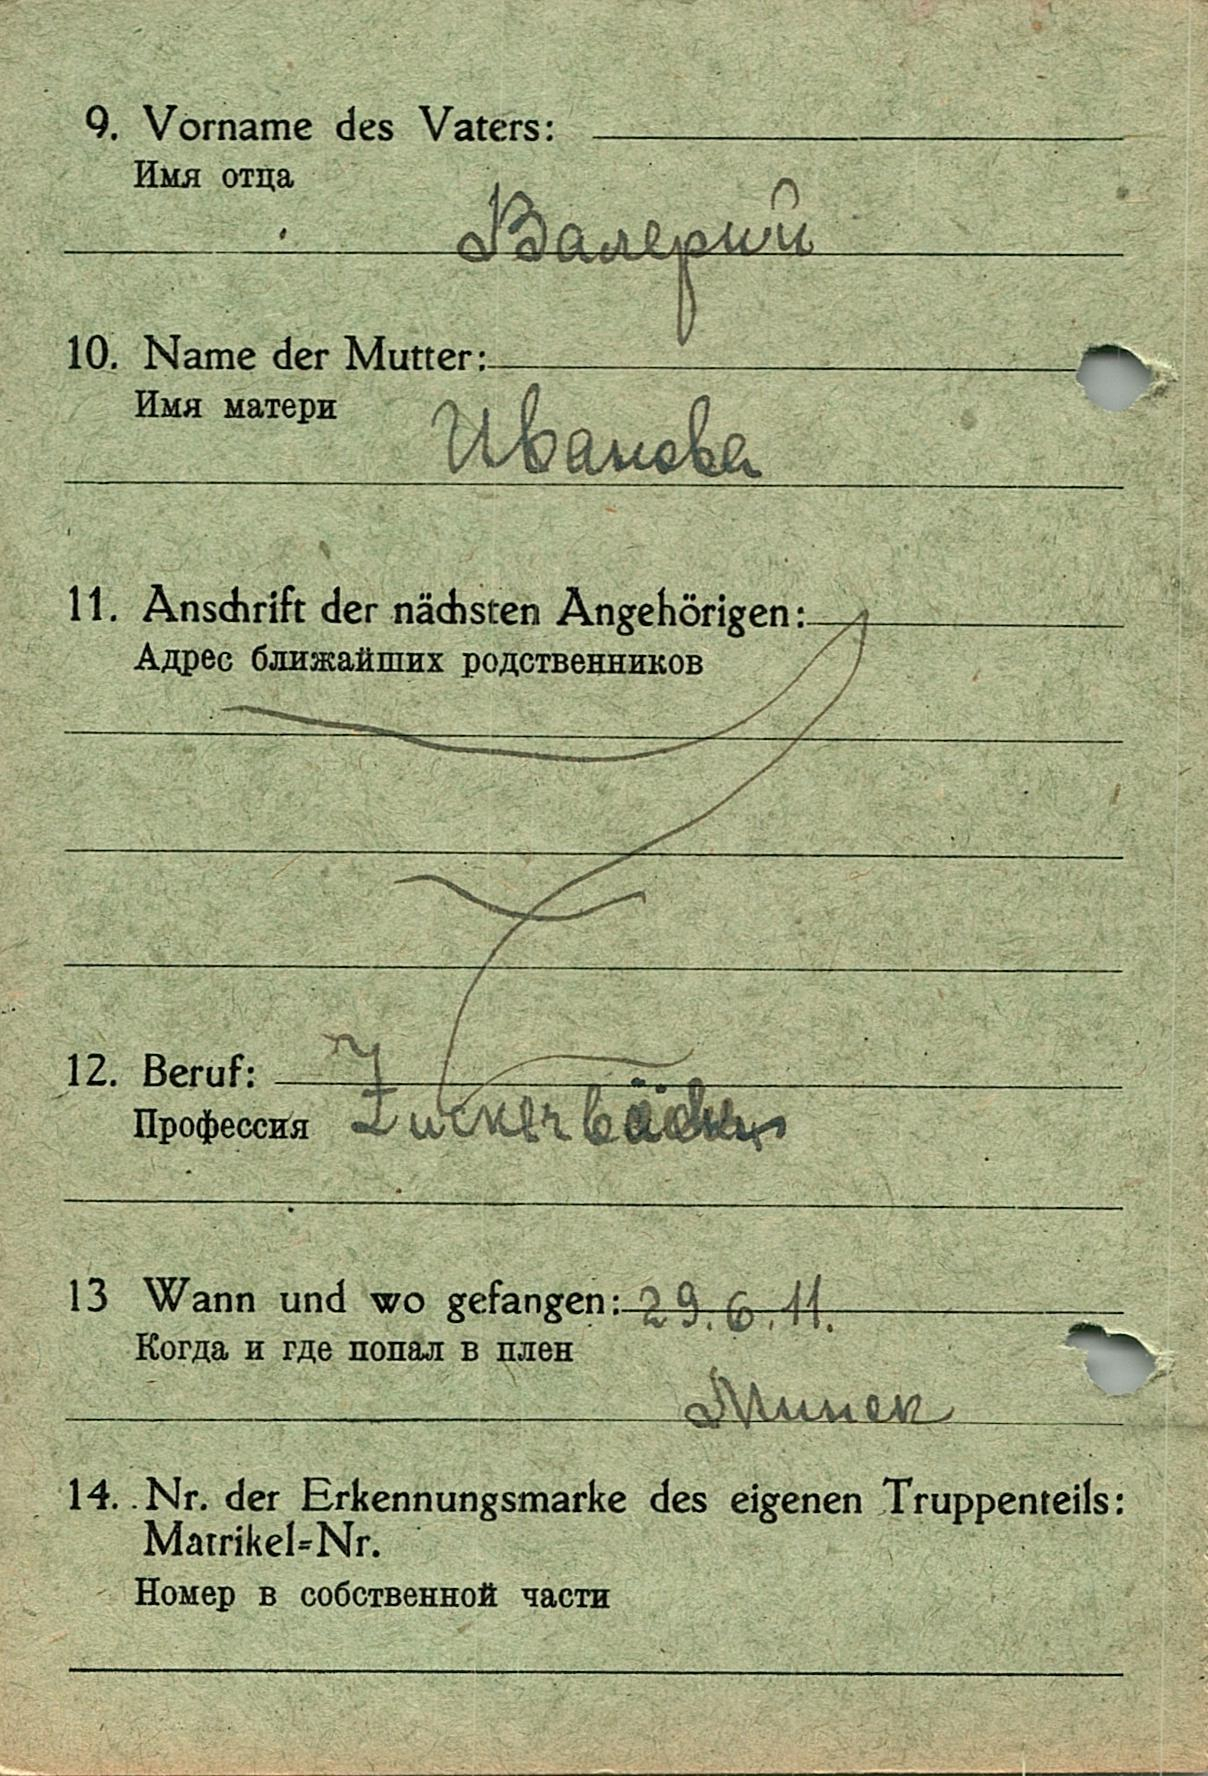 9. Vorname des Vaters:
Имя отца
Валерий
10. Name der Mutter:
Имя матери
Иванова
11. Anschrift der nächsten Angehörigen:
Адрес ближайших родственников
12. Beruf:
Профессия Zuckerbäcker
13 Wann und wo gefangen: 29.6.11.
Когда и где попал в плен
Минск
14. Nr. der Erkennungsmarke des eigenen Truppenteils:
Matrikel=Nr.
Номер в собственной части